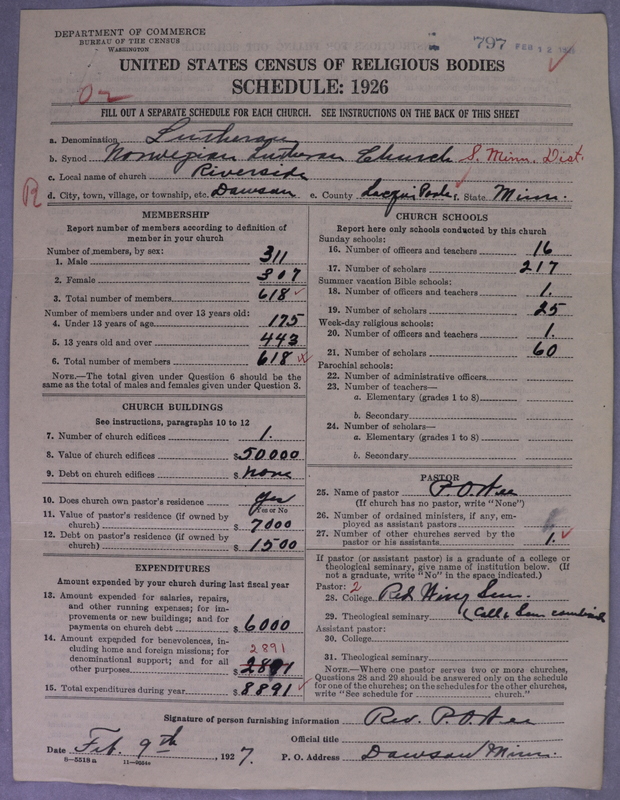 DEPARTMENT OF COMMERCE
BUREAU OF THE CENSUS
WASHINGTON
797 FEB 12
UNITED STATES CENSUS OF RELIGIOUS BODIES
SCHEDULE: 1926
FILL OUT A SEPARATE SCHEDULE FOR EACH CHURCH. SEE INSTRUCTIONS ON THE BACK OF THIS SHEET
a. Denomination Lutheran
b. Synod Norwegian Lutheran Church S. Minn. Dist.
c. Local name of church Riverside
d. City, town, village, or township, etc. Dawson e. County Lacqui Parle f. State Minn.
MEMBERSHIP
Report number of members according to definition of
member in your church
Number of members, by sex:
1. Male 311
2. Female 307
3. Total number of members 618
Number of members under and over 13 years old:
4. Under 13 years of age 175
5. 13 years old and over 443
6. Total number of members 618
NOTE.—The total given under Question 6 should be the
same as the total of males and females given under Question 3.
CHURCH BUILDINGS
See instructions, paragraphs 10 to 12
7. Number of church edifices 1.
8. Value of church edifices $ 50000
9. Debt on church edifices $ None
10. Does church own pastor's residence Yes
Yes or No
11. Value of pastor's residence (if owned by
church) $ 7000
12. Debt on pastor's residence (if owned by
church) $ 1500
EXPENDITURES
Amount expended by your church during last fiscal year
13. Amount expended for salaries, repairs,
and other running expenses; for im-
provements or new buildings; and for
payments on church debt $ 6000
14. Amount expended for benevolences, in-
cluding home and foreign missions; for 2891
denominational support; and for all
other purposes $ 2891
15. Total expenditures during year $ 8891
CHURCH SCHOOLS
Report here only schools conducted by this church
Sunday schools:
16. Number of officers and teachers 16
17. Number of scholars 217
Summer vacation Bible schools:
18. Number of officers and teachers 1.
19. Number of scholars 25
Week-day religious schools:
20. Number of officers and teachers 1.
21. Number of scholars 60
Parochial schools:
22. Number of administrative officers
23. Number of teachers—
a. Elementary (grades 1 to 8)
b. Secondary
24. Number of scholars—
a. Elementary (grades 1 to 8)
b. Secondary
PASTOR
25. Name of pastor P. O.
(If church has no pastor, write "None")
26. Number of ordained ministers, if any, em-
ployed as assistant pastors
27. Number of other churches served by the
pastor or his assistants 1.
If pastor (or assistant pastor) is a graduate of a college or
theological seminary, give name of institution below. (If
not a graduate, write "No" in the space indicated.)
Pastor: 2
28. College Red Wing Sem.
29. Theological seminary (Coll & Sem combined
Assistant pastor:
30. College
31. Theological seminary
NOTE.—Where one pastor serves two or more churches,
Questions 28 and 29 should be answered only on the schedule
for one of the churches; on the schedules for the other churches,
write "See schedule for church."
Signature of person furnishing information Rev. P. O.
Official title
Date Feb. 9th, 1927. P. O. Address Dawson Minn.
8—5519a 11—9594